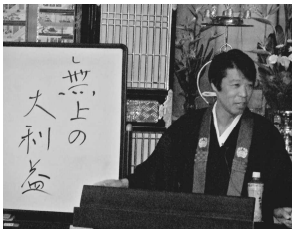 無上の
大利益